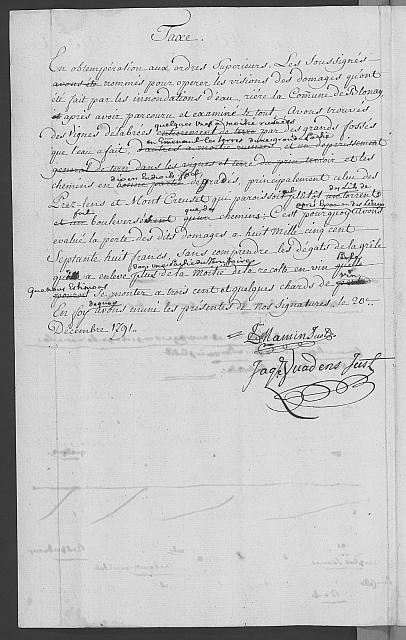 Taxe.
En obtempération aux ordres Superieurs. Les Soussignés
avons été nommés pour operer les visions des domages qu'ont
été fait par les innondations d'eau, riére la Comune de Blonay
et après avoir parcouru et examiné le tout, Avons trouvés
quelques unes a moitié ruinées
des vignes delabrées entierement de terre par des grands fossés
en Emenant les terres
que l'eau afait, et un deperissement
general de terre dans les vignes et terre du et les
dix en Endroits fort
chemins en bonne partie degradés, principalement celui des
Prez-Lens et Mont Creuset qui paroissoit plutot un torrent
fort que des
et un bouleversement qu'un chemin; C'est pourquoy Avons
evalué la perte des dits domages a huit Mille cinq cent
Septante huit francs, Sans comprendre les dégats de la grèle
qui a enlevé plus de la Moitié de la recolte en vin
que nous Estimons vin
pouvoit Se monter a trois cent et quelques chards de
dequoy
En foy avons muni les présentes de nos Signatures, le 20e
Décembre 1791.
Mamin Just
Jaq Quadens Just